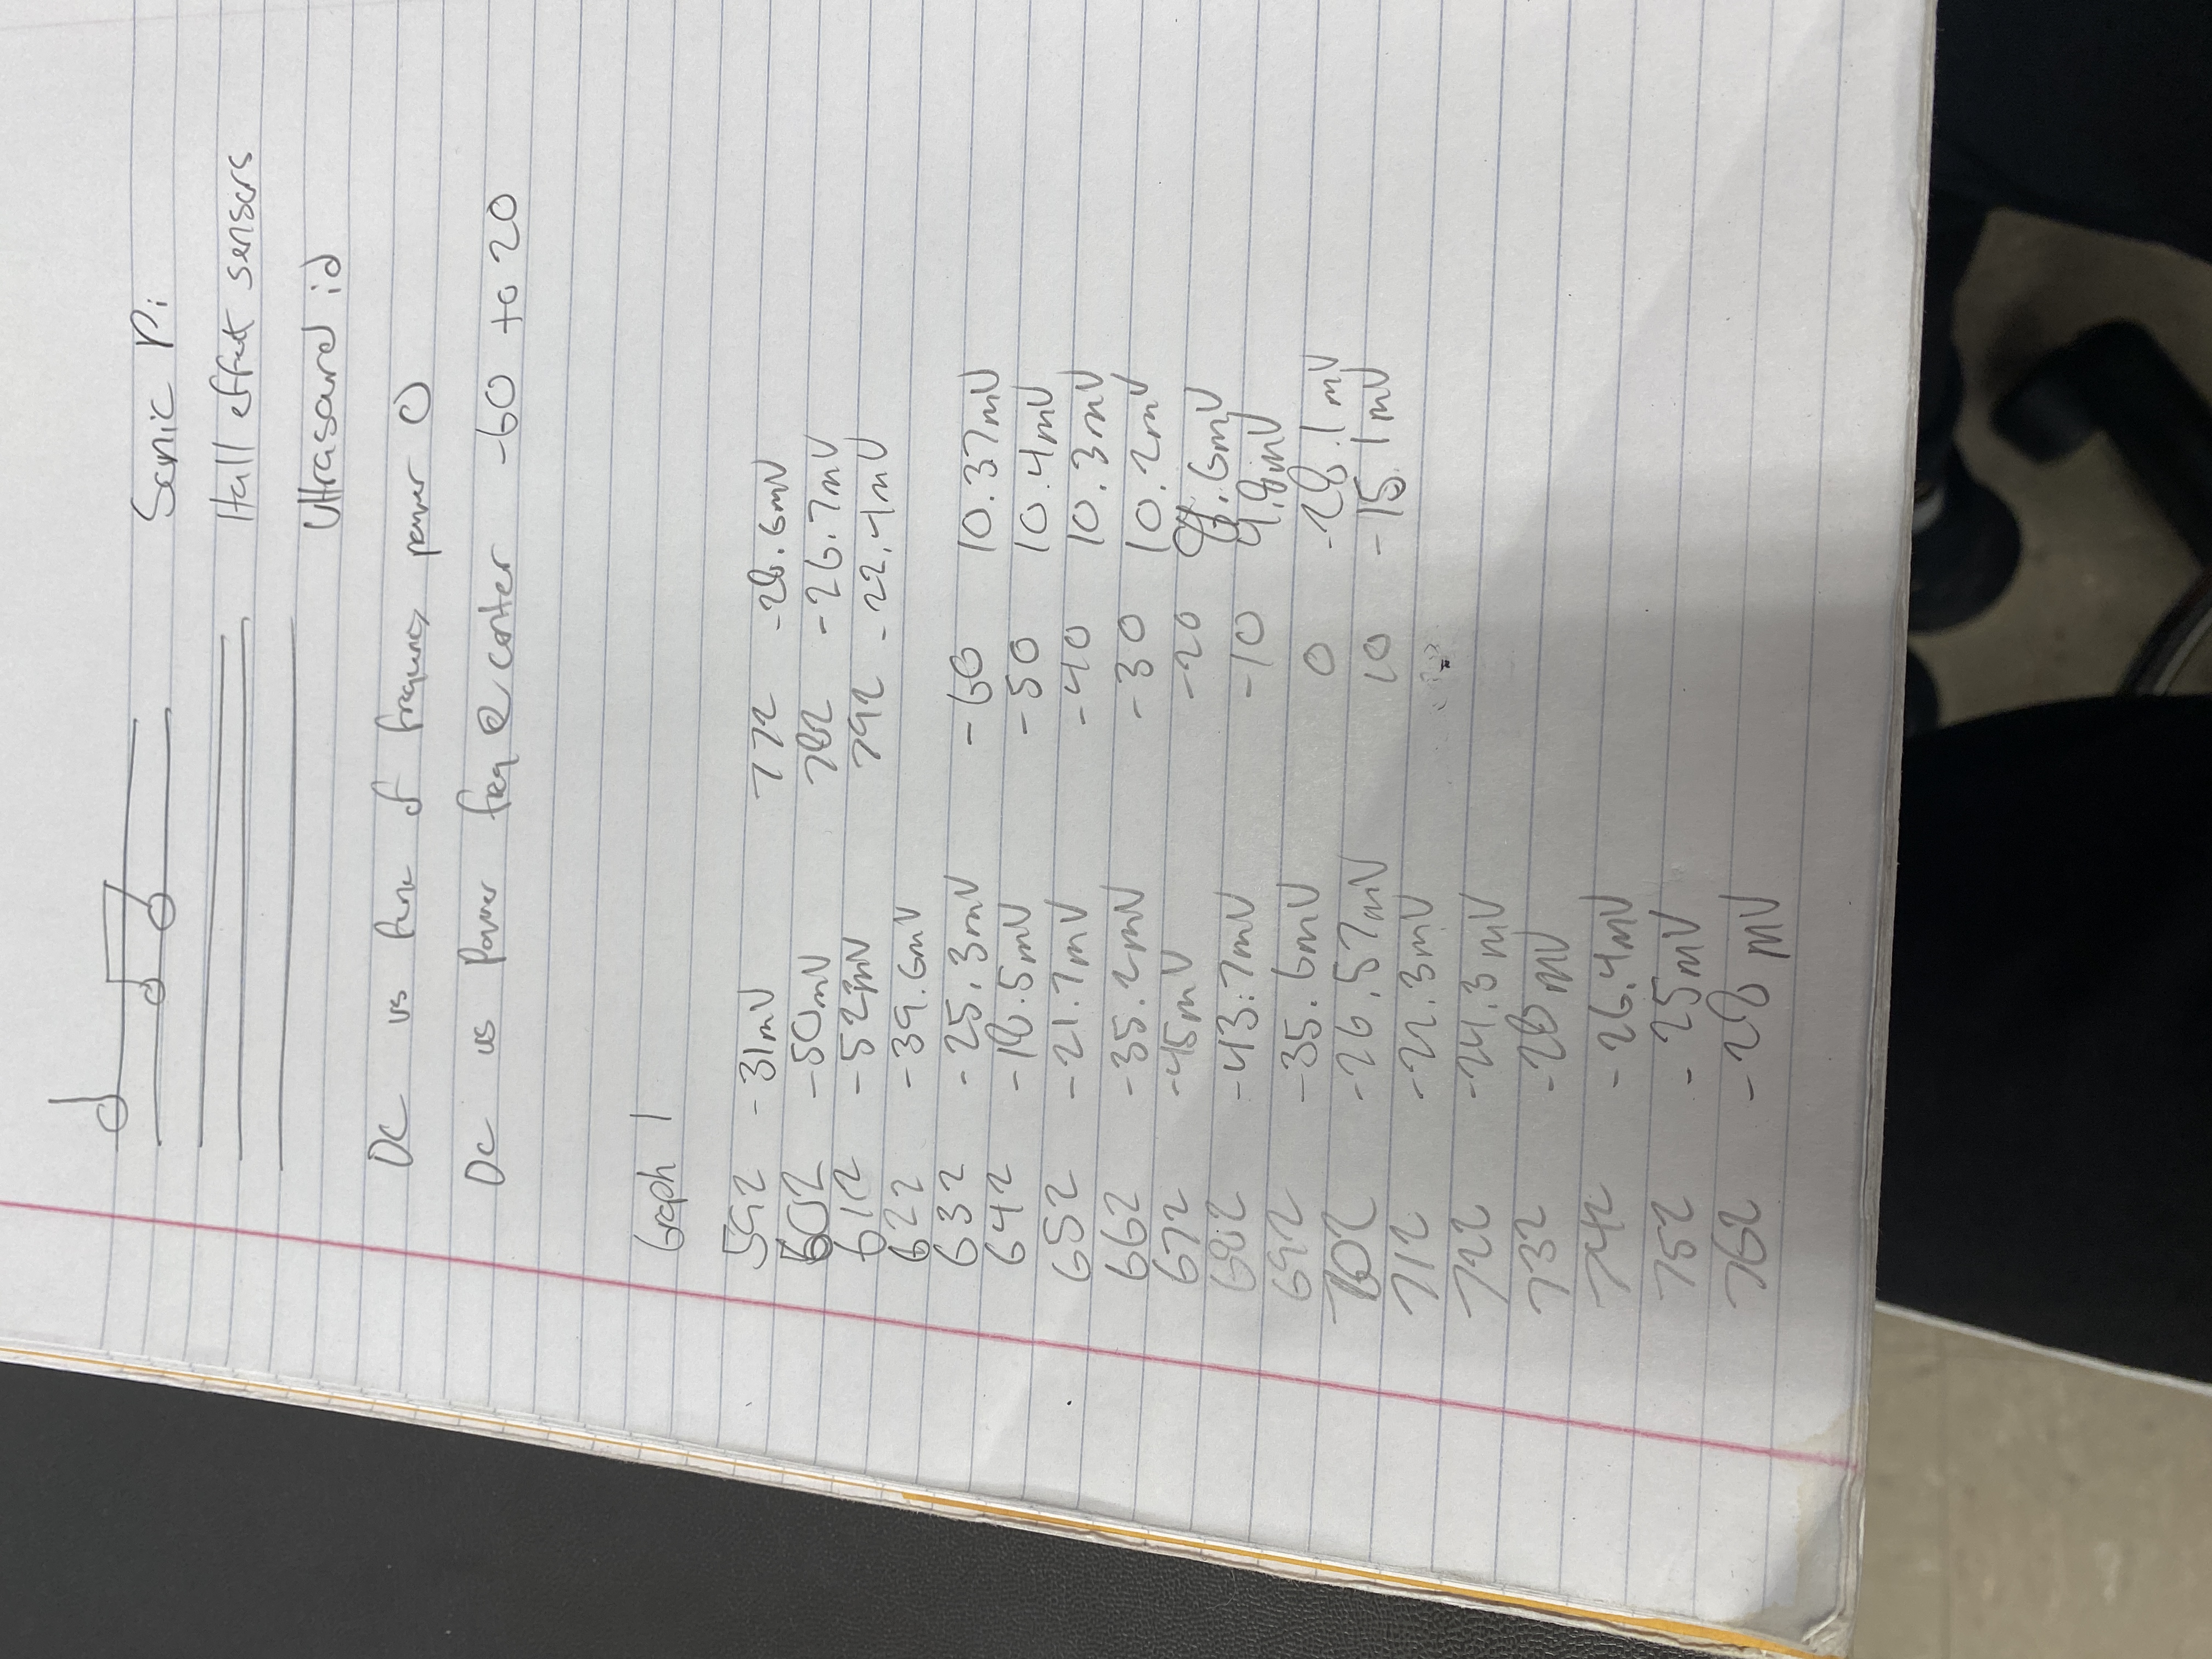 Sonic Pi
Hall effect sensors
Ultrasound id
DC vs func of frequency power 0
DC vs Power freq @ center -60 to 20
Graph 1
592 -31mV
602 -50mV
612 -52mV
622 -39.6mV
632 -25.3mV
642 -18.5mV
652 -21.7mV
662 -35.2mV
672 -45mV
682 -43.7mV
692 -35.6mV
702 -26.57mV
712 -22.3mV
722 -24.3mV
732 -28mV
742 -26.4mV
752 -25mV
762 -28mV
772 -28.6mV
782 -26.7mV
792 -22.4mV
-60 10.37mV
-50 10.4mV
-40 10.3mV
-30 10.2mV
-20
-10 9.8mV
0 -28.1mV
10 -15.1mV